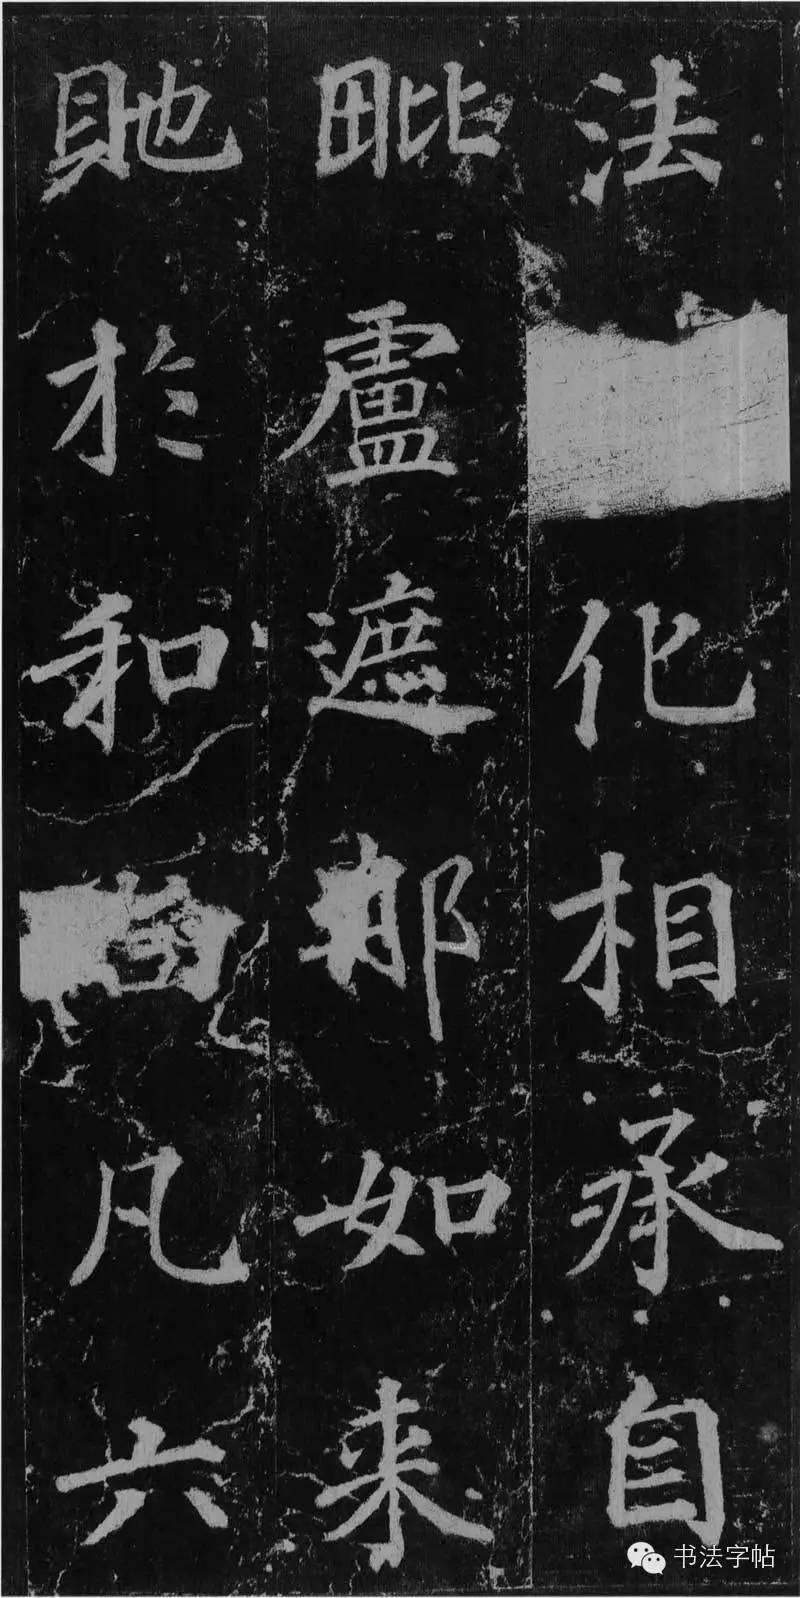 法化相承自
毗盧遮那如来
貤於和凡六
书法字帖